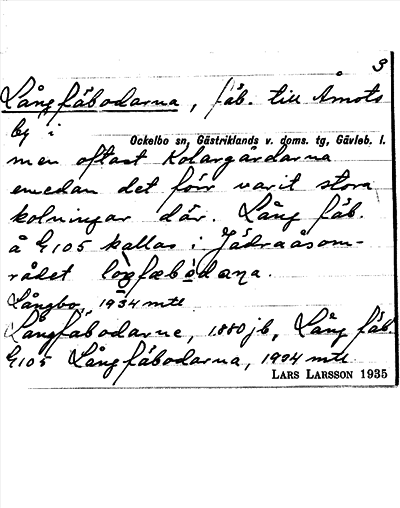 3
Långfäbodarna, fäb. till Åmots
by i
Ockelbo sn, Gästriklands v. doms. tg, Gävleb. l.
men oftast Kolargårdarna
emedan det förr varit stora
kolningar där. Lång fäb.
å G105 kallas i Jädraåsom-
rådet
Långbo, 1934 mtl
Långfäbodarne, 1880 jb, Lång fäb.
G105 Långfäbodarna, 1934 mtl
LARS LARSSON 1935